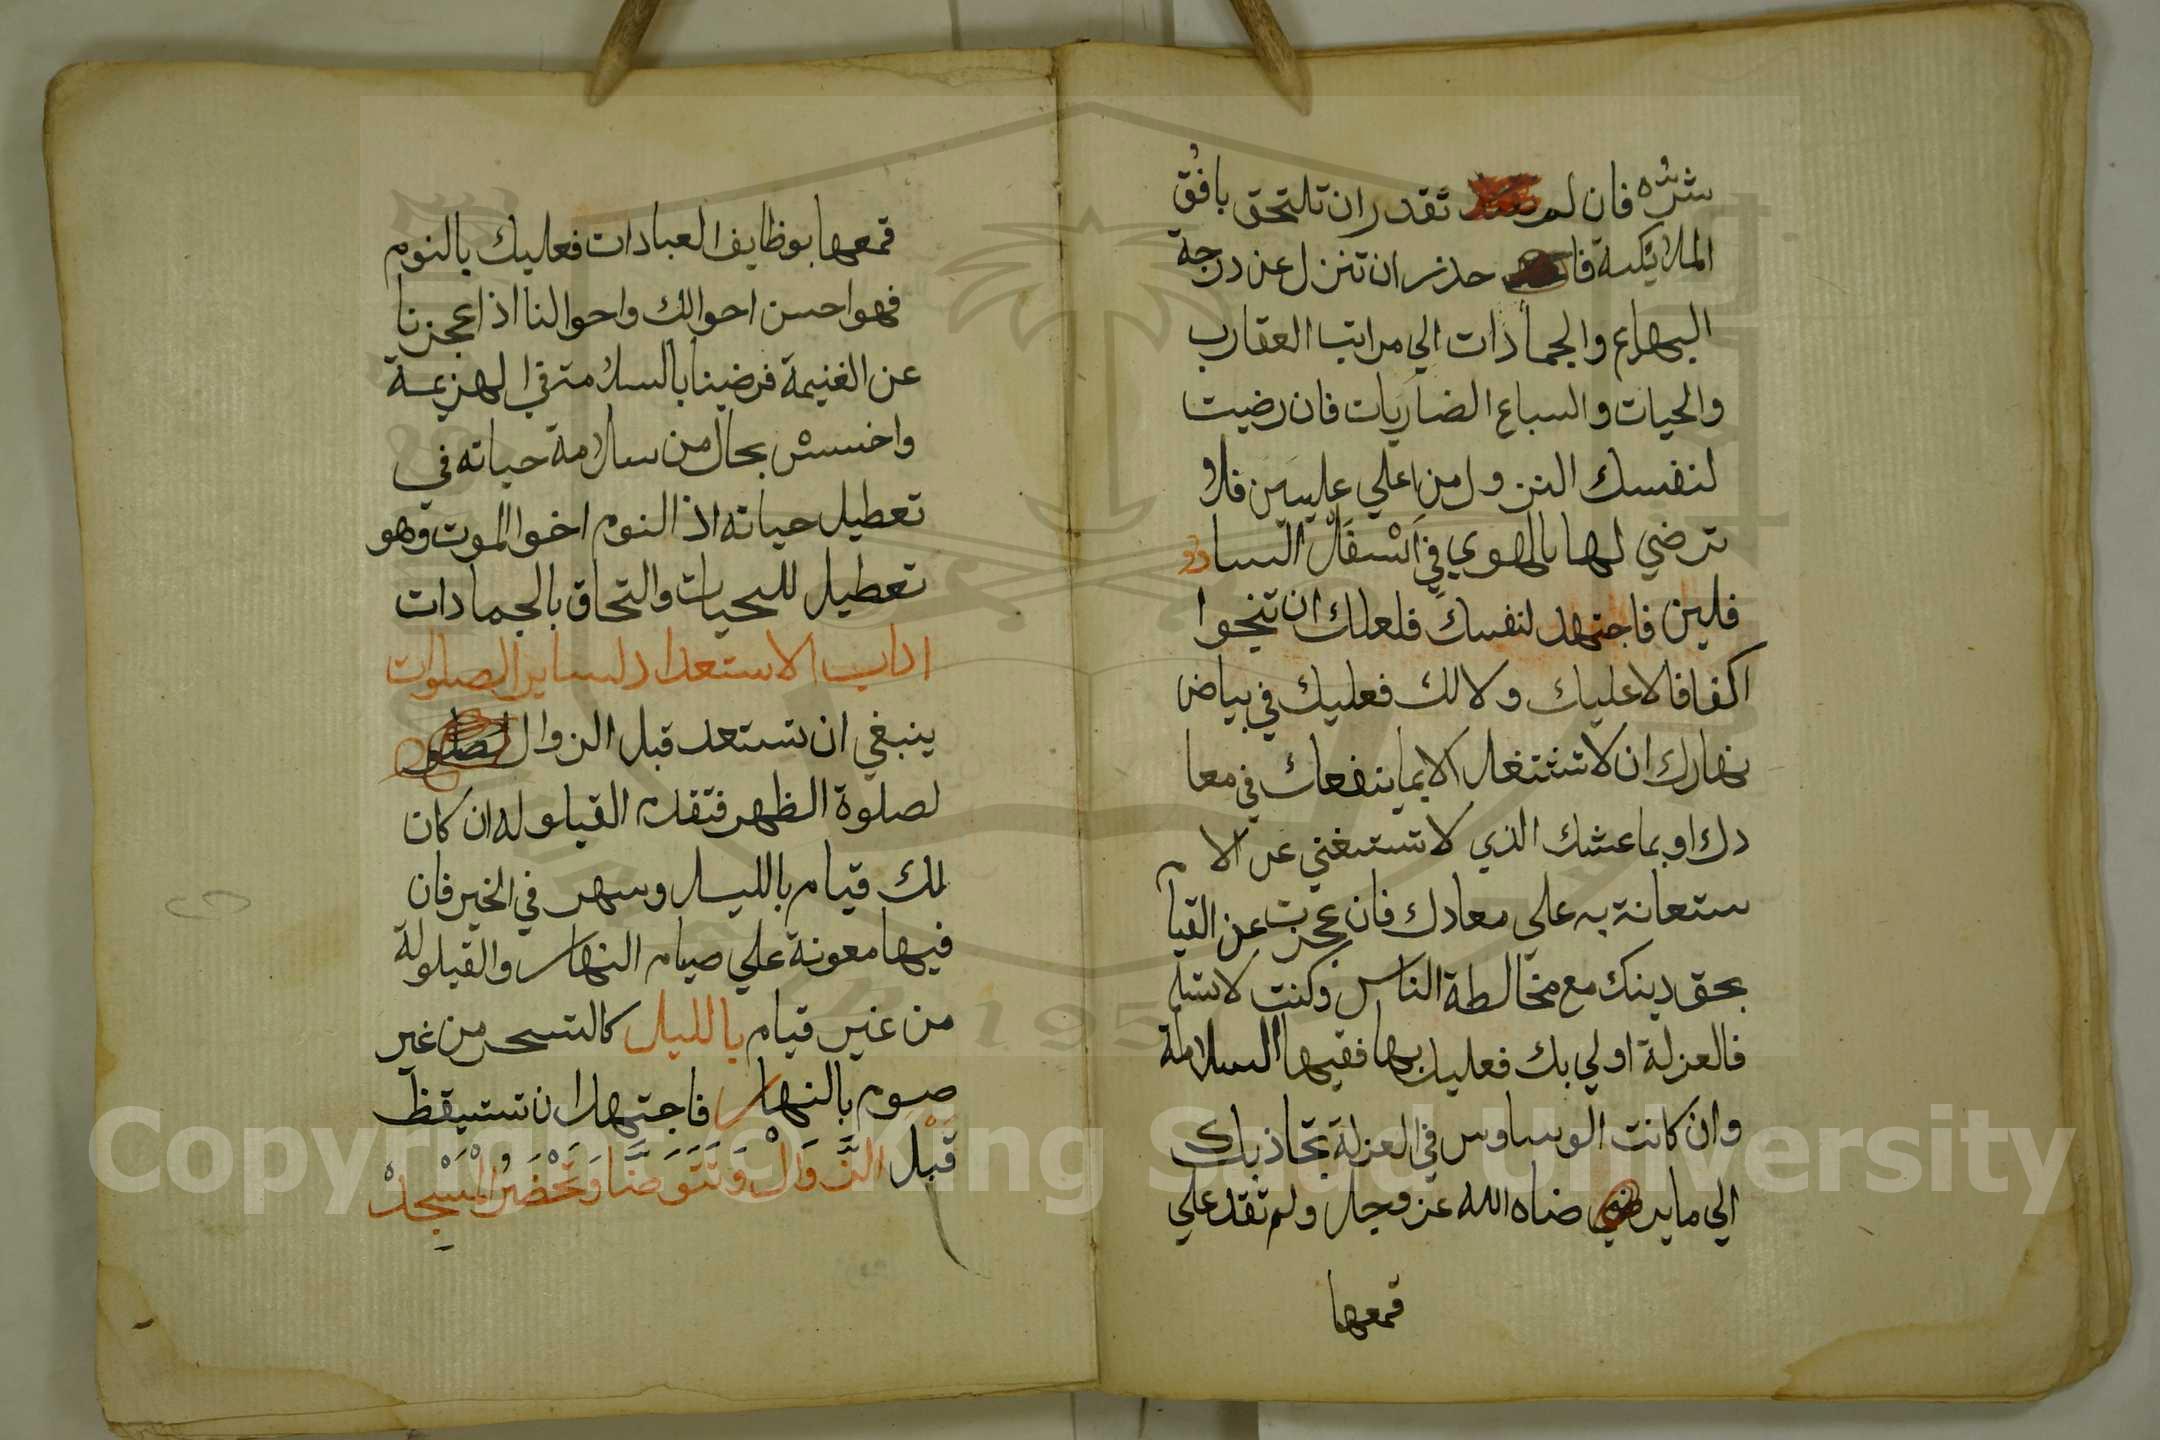 شرّه فان لم تقدر ان تلتحق بافُق
الملايكة فا حذر ان تنزل عن درجة
البهايم والجمادات الي مراتب العقارب
والحيات والسباع الضاريات فان رضيت
لنفسك النزول من اعلي عليين فلا
ترضي لها بالهوي في اسْفَل السا
فلين فاجتهد لنفسك فلعلك ان تنجوا
اكفافا لا عليك ولا لك فعليك في بياض
نهارك ان لا تشتغل الا بما ينفعك في معا
دك او بماعشك الذي لا تستغني عن الا
ستعانة به علي معادك فان عجزت عن القيام
بحق دينك مع مخالطة الناس وكنت لا تسلم
فالعزلة اولي بك فعليك بها ففيها السلامة
وان كانت الوساوس في العزلة تجاذبك
الي ما ير ضاه الله عز وجل ولم تقد علي
قمعها
قمعها بوظايف العبادات فعليك بالنوم
فهو احسن احوالك واحوالنا اذا عجزنا
عن الغنيمة فرضينا بالسلامة في الهزيمة
واخسس بحال من سلامة حياته في
تعطيل حياته اذ النوم اخو الموت وهو
تعطيل للحيات والتحاق بالجمادات
اداب الاستعداد لساير الصلوات
ينبغي ان تستعد قبل الزوال
لصلوة الظهر فتقدم القيلوله ان كان
لك قيام بالليل وسهر في الخير فان
فيها معونة علي صيام النهار والقيلولة
من غير قيام بالليل كالتسحر من غير
صوم بالنهار فاجتهد ان تستيقظ
قَبْلَ الزَّوَالْ وَتَتَوَضَّا وَتَحْضَرُ الْمَسْجِدْ
Copyright © King Saud University
195